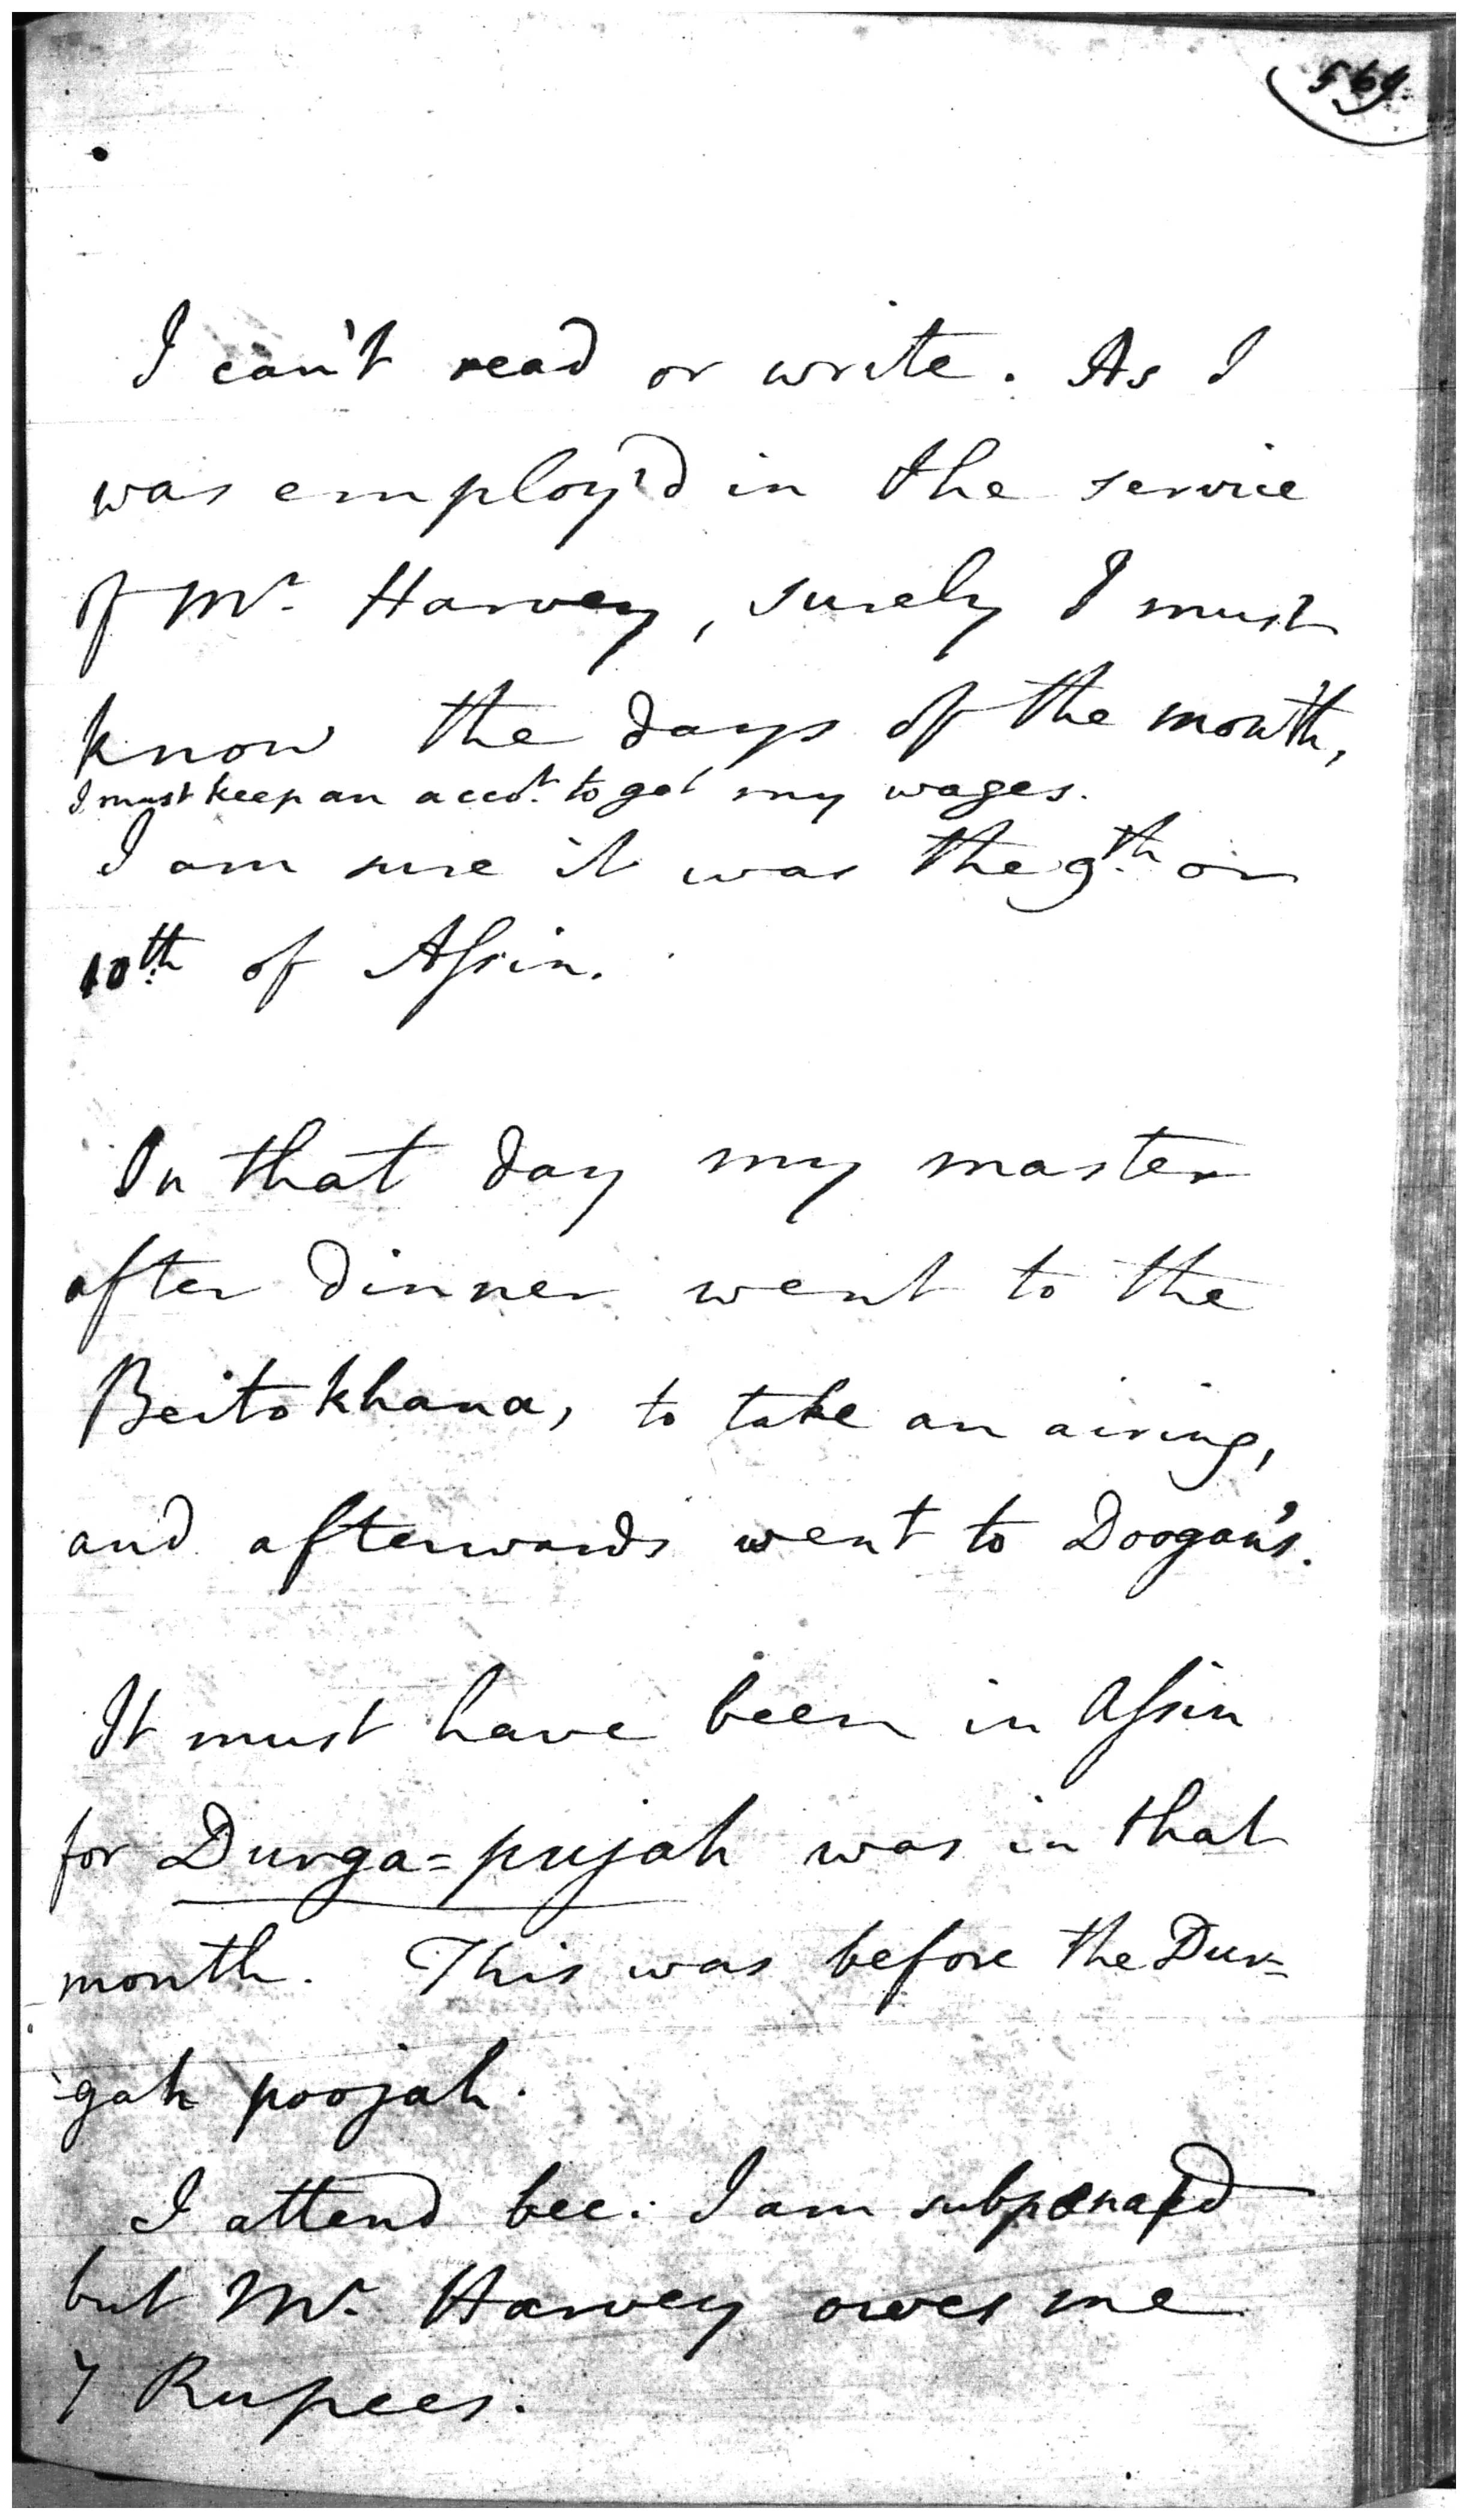 569.
I can't read or write. As I
was employ'd in the service
of Mr. Harvey, surely I must
know the days of the month,
I must keep an accot. to get my wages.
I am sure it was the 9th. or
10th. of Assin.
In that day my master
after dinner went to the
Beitokhana, to take an airing,
and afterwards went to Doogan's.
It must have been in Assin
for Durga=pujah was in that
month. This was before the Dur=
gah poojah.
I attend bec: I am subpœna'd
but Mr. Harvey owes me
7 Rupees.